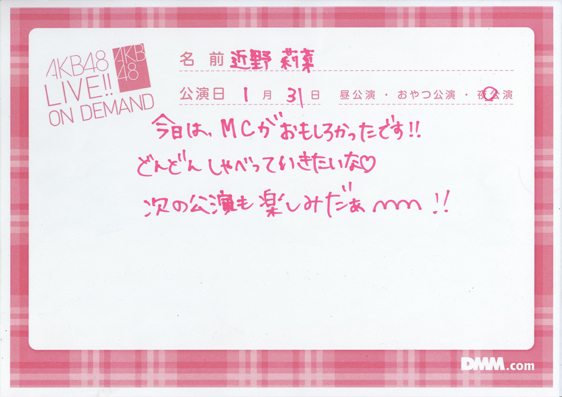 AKB48
LIVE!!
ON DEMAND
AKB
48
名前 近野 莉菜
公演日 1月 31日 昼公演・おやつ公演・夜公演
今日は、MCがおもしろかったです!!
どんどんしゃべっていきたいな♡
次の公演も楽しみだぁ〜〜!!
DMM.com